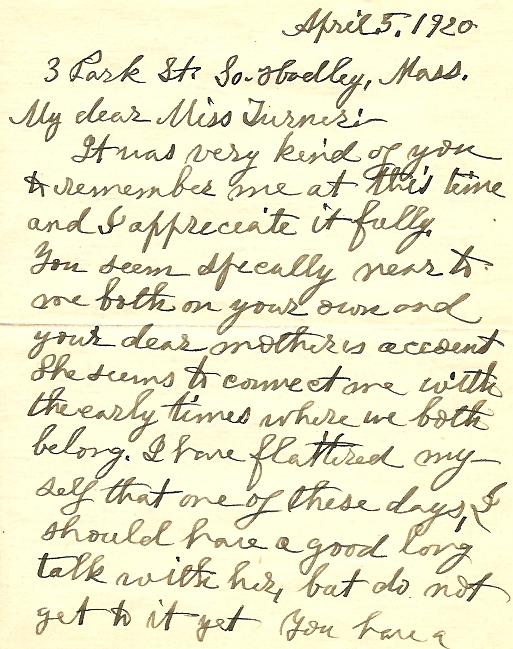 April 5, 1920
3 Park St. So. Hadley, Mass.
My dear Miss Turner:—
It was very kind of you
to remember me at this time
and I appreciate it fully.
You seem specally near to
me both on your own and
your dear mother's account
She seems to connect me with
the early times where we both
belong. I have flattered my-
self that one of these days, I
should have a good long
talk with her, but do not
get to it yet You have a